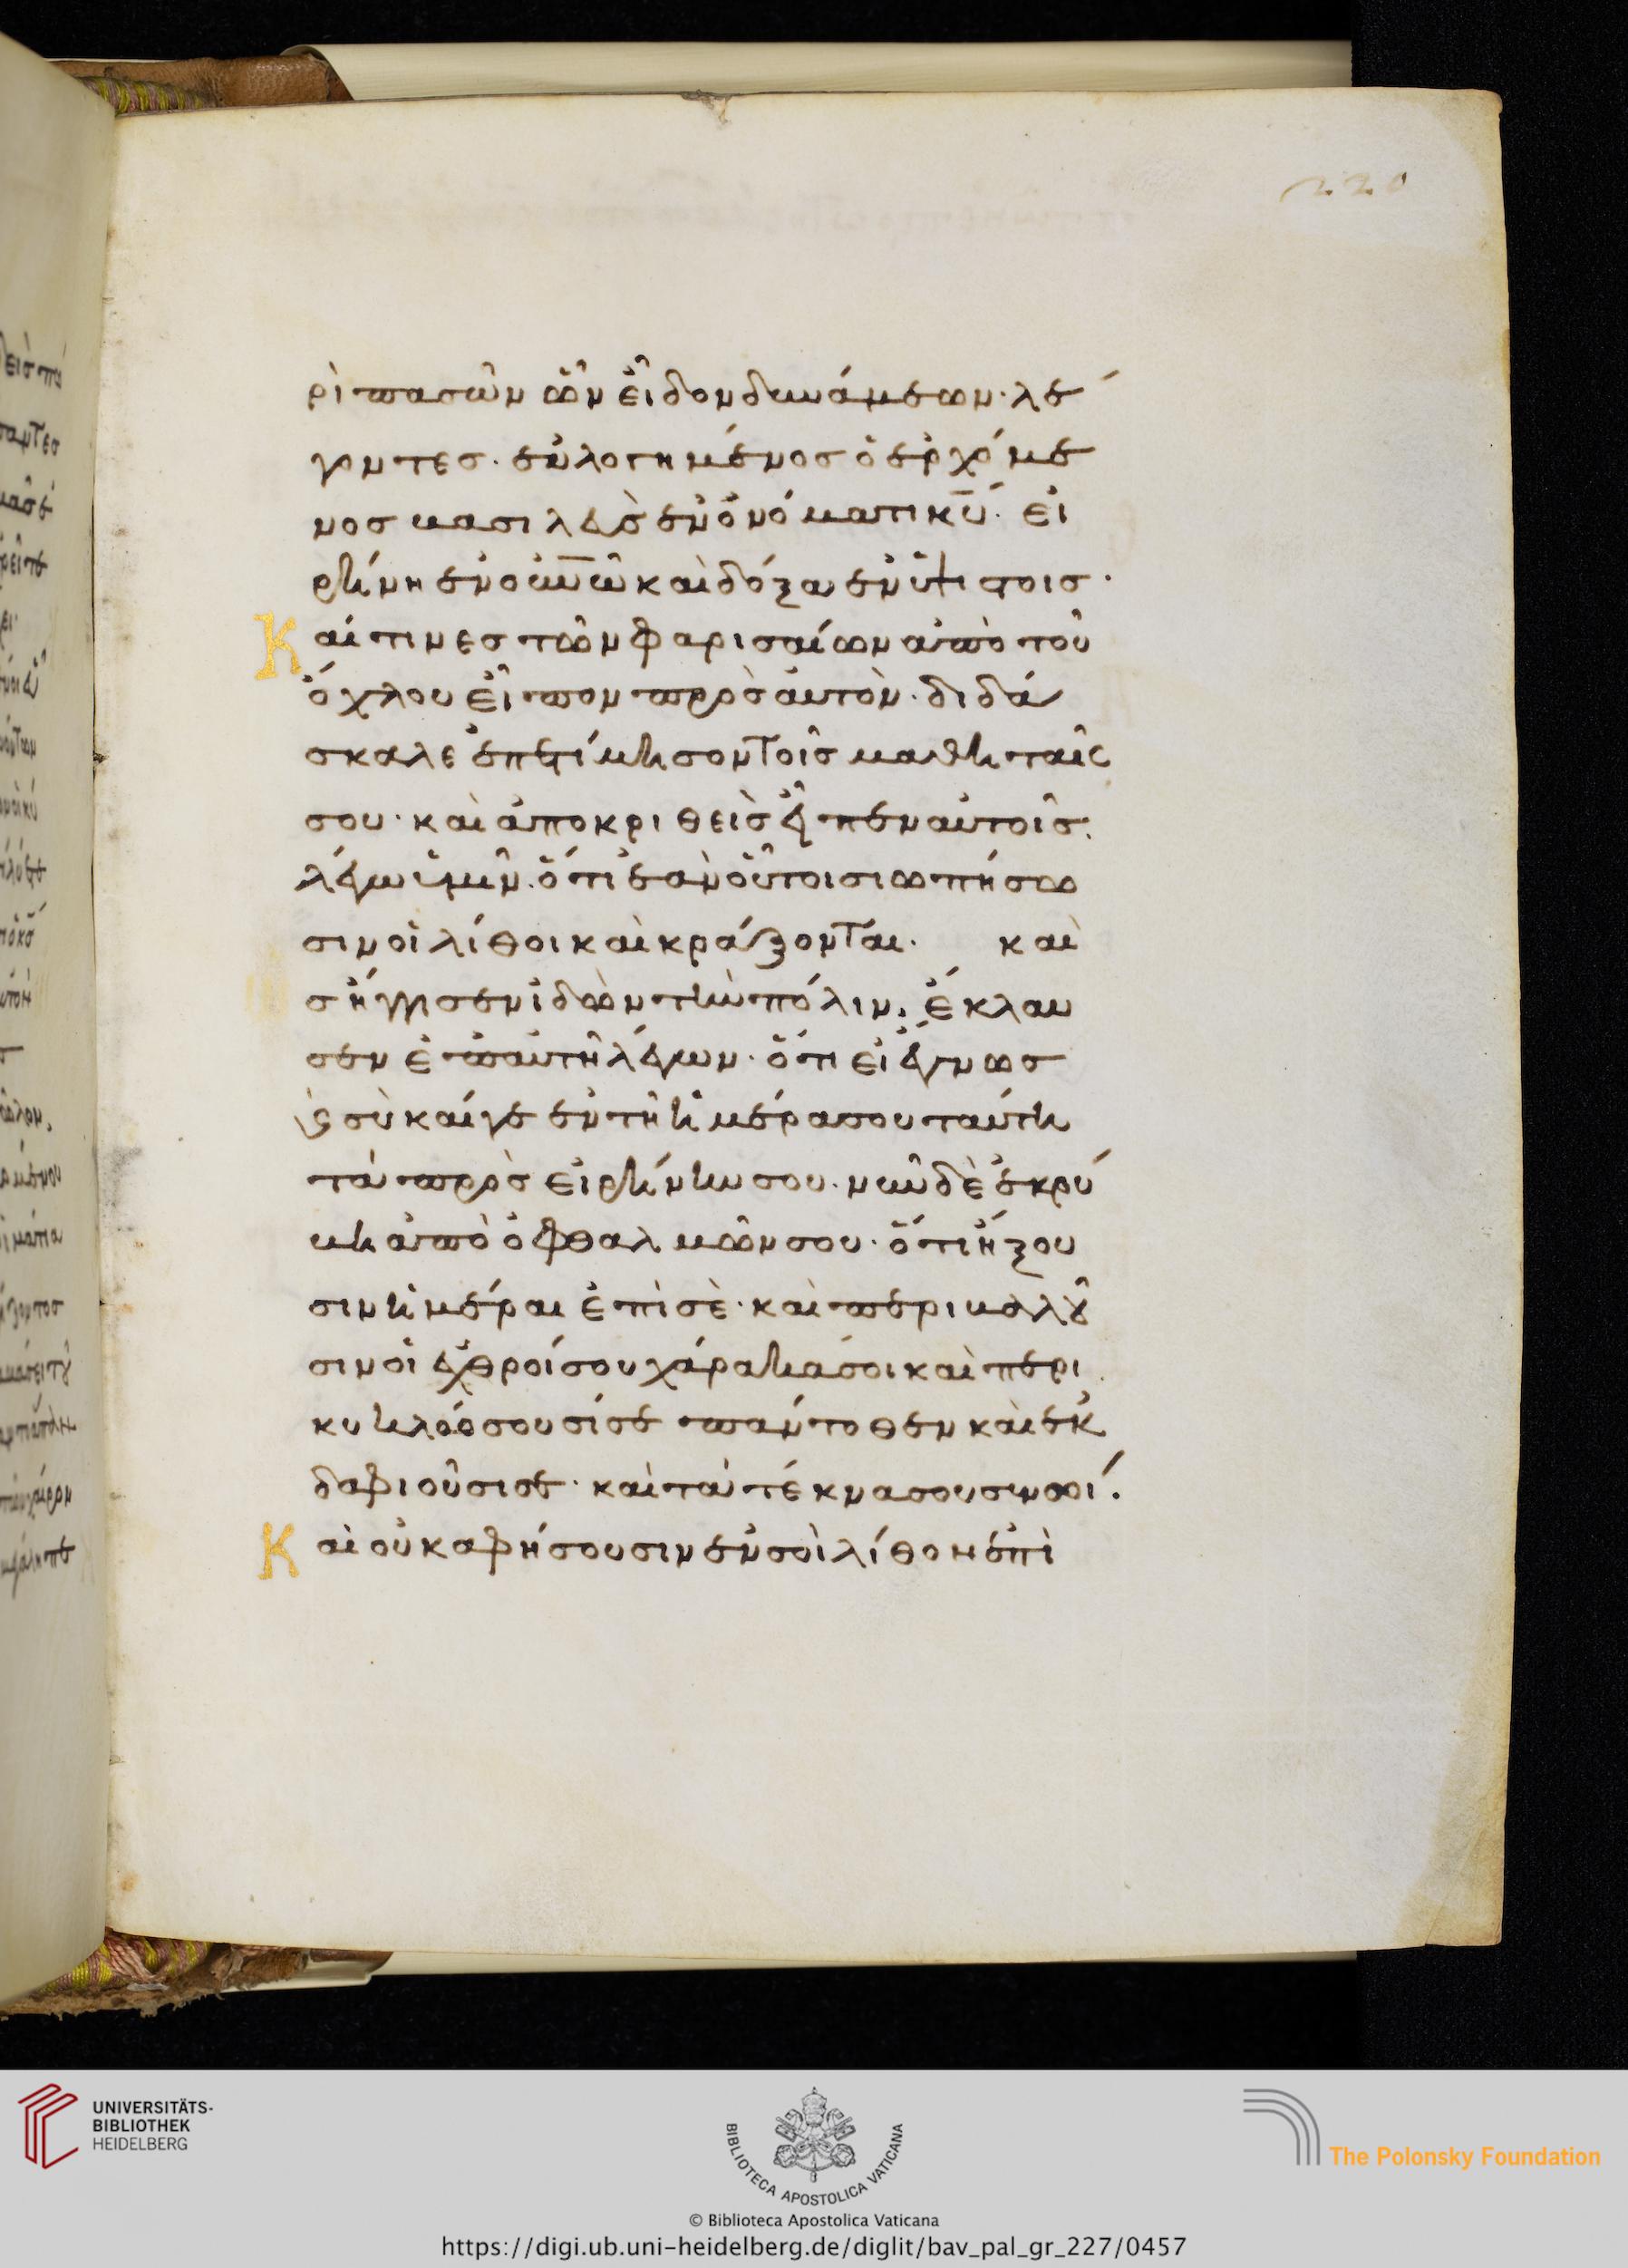 220
ρὶ πασῶν ὧν εἶδον δυνάμεων· λέ
γοντες· εὐλογημένος ὁ ἐρχόμε
νος βασιλεὺς ἐν ὀνόματι κ̅υ̅· εἰ
ρήνη ἐν ο̅υ̅ν̅ω̅ καὶ δόξα ἐν ὑψίστοις·
Καί τινες τῶν φαρισαίων ἀπὸ τοῦ
ὄχλου εἶπον πρὸς αὐτὸν· διδά
σκαλε ἐπιτίμησον τοῖς μαθηταῖς
σου· καὶ ἀποκριθεὶς εἶπεν αὐτοῖς·
λέγω ὑμῖν· ὅτι ἐὰν οὗτοι σιωπήσω
σιν οἱ λίθοι κεκράξονται· καὶ
ς ἤγγισεν ἰδὼν τὴν πόλιν, ἔκλαυ
σεν ἐπ αὐτῆ λέγων· ὅτι εἰ ἔγνως
ς σὺ καί γε ἐν τῆ ἡμέρα σου ταύτη
τὰ πρὸς εἰρήνην σου· νῦν δὲ ἐκρύ
βη ἀπὸ ὀφθαλμῶν σου· ὅτι ἥξου
σιν ἡμέραι ἐπὶ σὲ· καὶ περιβαλοῦ
σιν οἱ ἐχθροί σου χάρακά σοι καὶ περι
κυκλώσουσί σε πάντοθεν καὶ ἐ
δαφιοῦσι σε· καὶ τὰ τέκνα σου ἐν σοί.
Καὶ οὐκ ἀφήσουσιν ἐν σοὶ λίθον ἐπὶ
UNIVERSITÄTS-
BIBLIOTHEK
HEIDELBERG
BIBLIOTECA APOSTOLICA VATICANA
© Biblioteca Apostolica Vaticana
The Polonsky Foundation
https://digi.ub.uni-heidelberg.de/diglit/bav_pal_gr_227/0457